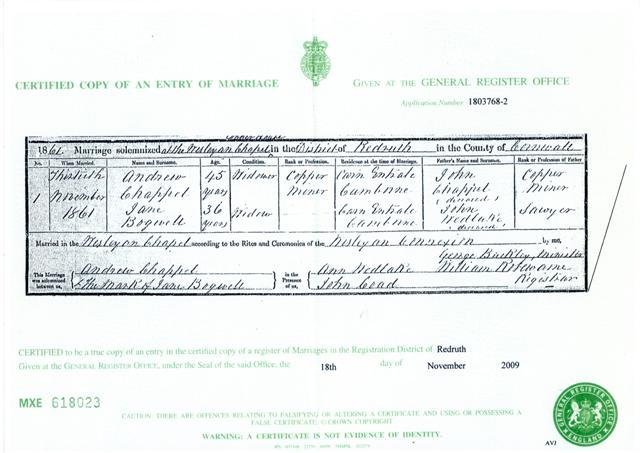 CERTIFIED COPY OF AN ENTRY OF MARRIAGE
GIVEN AT THE GENERAL REGISTER OFFICE
Application Number 1803768-2
1861. Marriage solemnized at the Wesleyan Chapel in the District of Redruth in the County of Cornwall
No. When Married. Name and Surname. Age. Condition. Rank or Profession. Residence at the time of Marriage. Father's Name and Surname. Rank or Profession of Father
1 Thirtieth November 1861
Andrew Chappel 45 years Widower Copper Miner Carn Entral Camborne John Chappel (deceased) Copper Miner
Jane Bogwell 36 years Widow Carn Entral Camborne John Nedlake (deceased) Sawyer
Married in the Wesleyan Chapel according to the Rites and Ceremonies of the Wesleyan Connexion by me,
George Buckley, Minister
This Marriage was solemnized between us, Andrew Chappel
The Mark of Jane Bogwell
in the Presence of us, Ann Nedlake
John Coad
William Registrar
CERTIFIED to be a true copy of an entry in the certified copy of a register of Marriages in the Registration District of Redruth
Given at the GENERAL REGISTER OFFICE, under the Seal of the said Office, the 18th day of November 2009
MXE 618023
CAUTION: THERE ARE OFFENCES RELATING TO FALSIFYING OR ALTERING A CERTIFICATE AND USING OR POSSESSING A
FALSE CERTIFICATE. © CROWN COPYRIGHT
WARNING: A CERTIFICATE IS NOT EVIDENCE OF IDENTITY.
GENERAL REGISTER OFFICE
ENGLAND
AVJ